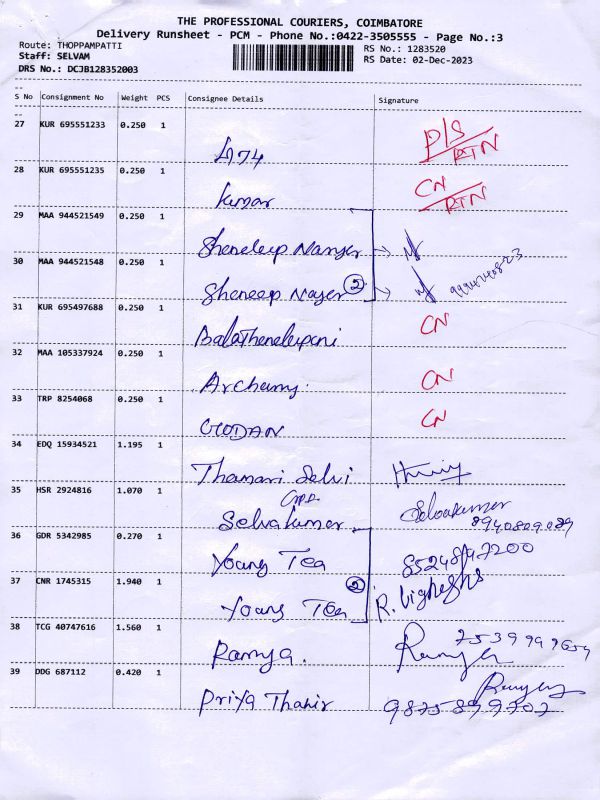 THE PROFESSIONAL COURIERS, COIMBATORE
Delivery Runsheet - PCM - Phone No.:0422-3505555 - Page No.:3
Route: THOPPAMPATTI RS No.: 1283520
Staff: SELVAM RS Date: 02-Dec-2023
DRS No.: DCJB128352003
--
S No Consignment No Weight PCS Consignee Details Signature
--
27 KUR 695551233 0.250 1
P/S
RTN
28 KUR 695551235 0.250 1
Kumar CN
RTN
29 MAA 944521549 0.250 1
30 MAA 944521548 0.250 1
2
31 KUR 695497688 0.250 1
CN
32 MAA 105337924 0.250 1
CN
33 TRP 8254068 0.250 1
CN
34 EDQ 15934521 1.195 1
Thamarai Selvi
35 HSR 2924816 1.070 1
Selvakumar Selvakumar
8940809089
36 GDR 5342985 0.270 1
Young Tea 8524847200
37 CNR 1745315 1.940 1
2
Young Tea R. Vighesh
38 TCG 40747616 1.560 1
7539999659
Ramya. Ramya
39 DDG 687112 0.420 1
Priya Thahir 9875899702